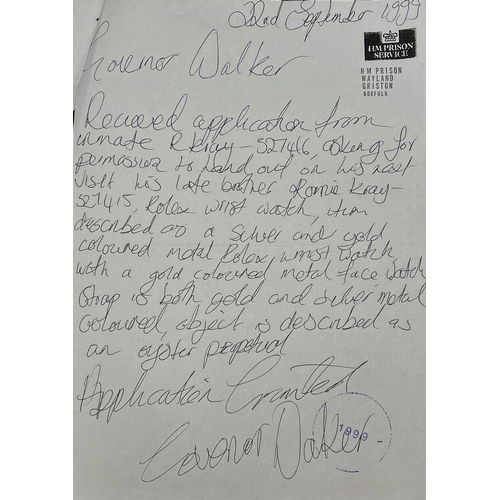 22nd September 1999
HM PRISON
SERVICE
HM PRISON
WAYLAND
GRISTON
NORFOLK
Governor Walker
Recieved application from
inmate R Kray - 527416, asking for
permission to hand out on his next
visit his late brother Ronnie Kray -
527415, Rolex wrist watch, item
described as a silver and gold
coloured metal Rolex, wrist watch
with a gold coloured metal face watch
strap is both gold and silver metal
coloured, object is described as
an oyster perpetual
Application Granted
Govenor
1999